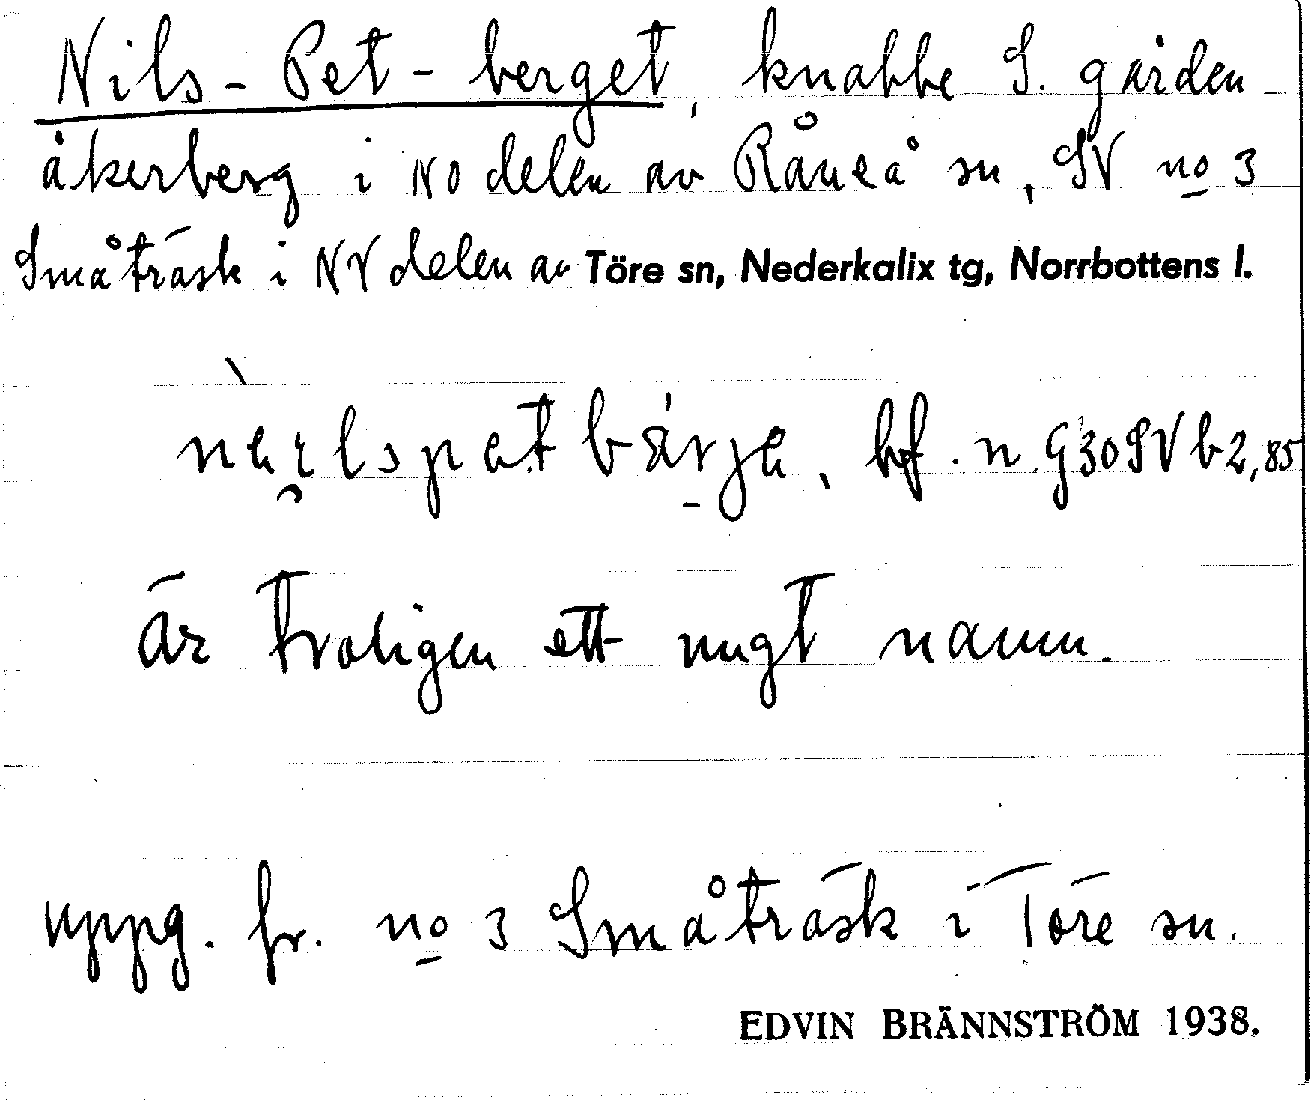 Nils-Pet-berget, knabbe S. gården
åkerberg i NO delen av Råneå sn, SV no 3
Småträsk i NV delen av Töre sn, Nederkalix tg, Norrbottens l.
bf. n. G30SVb2,85
är troligen ett ungt namn.
uppg. fr. no 3 Småträsk i Töre sn.
EDVIN BRÄNNSTRÖM 1938.